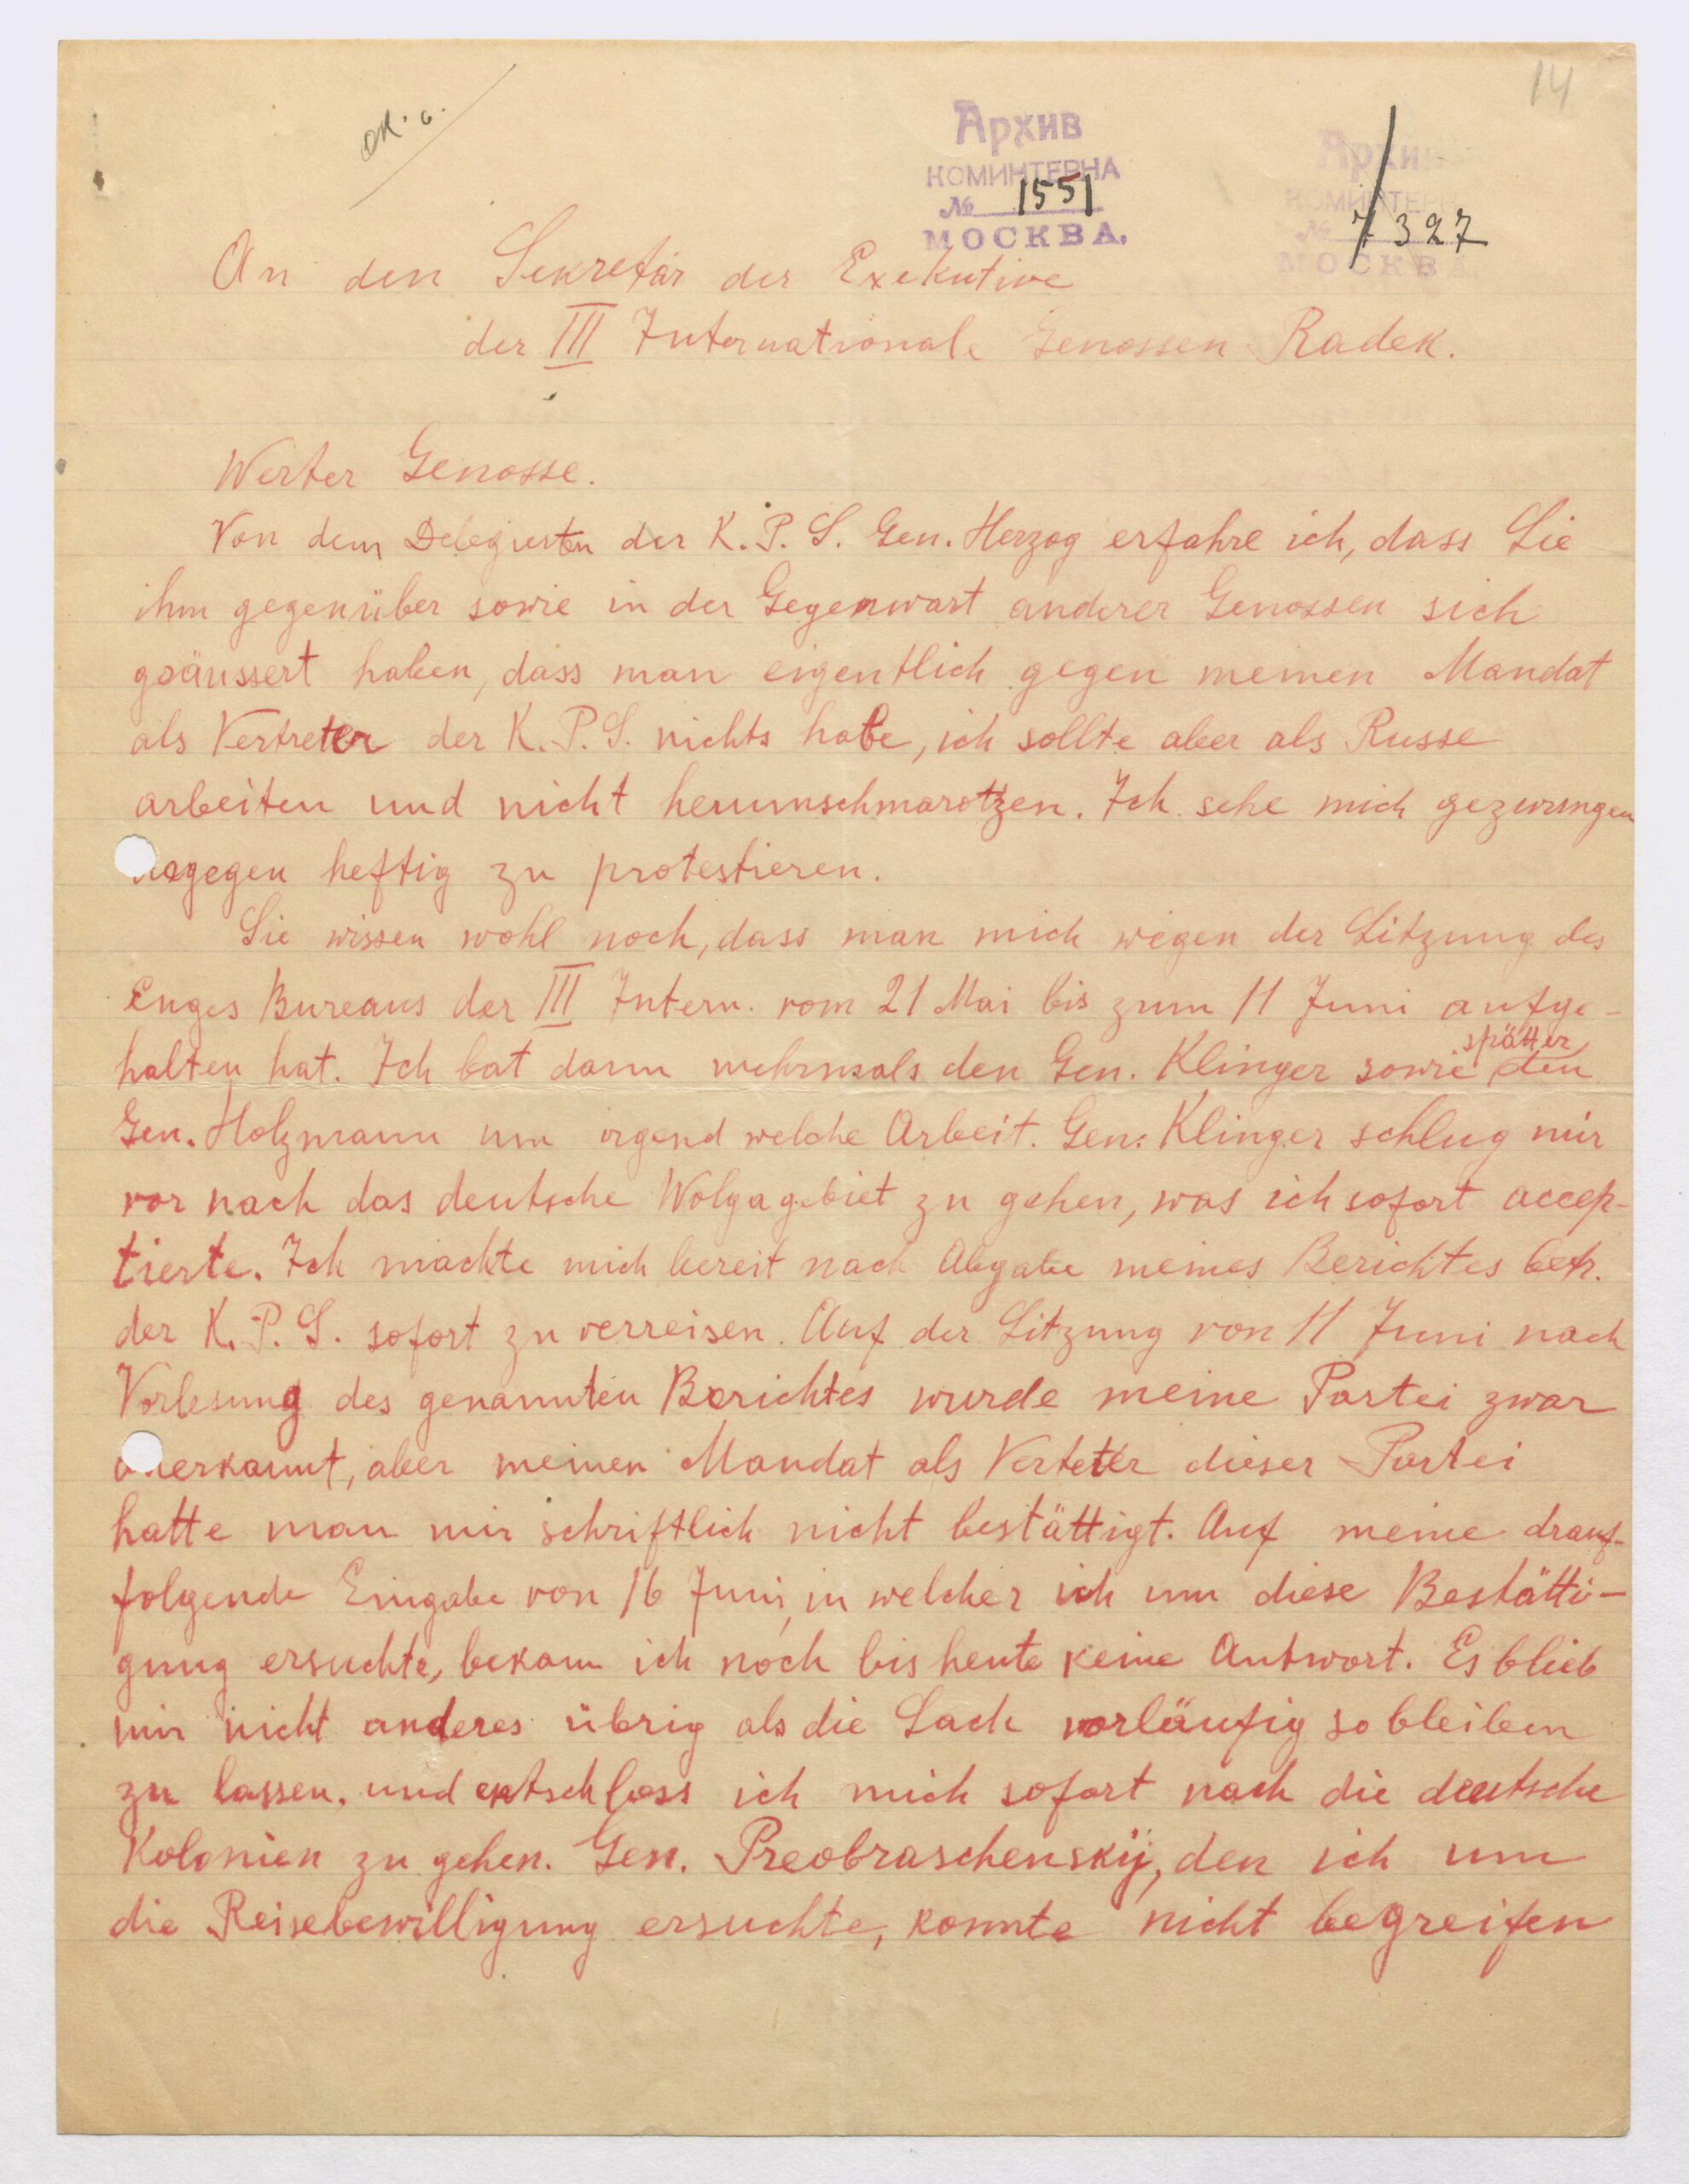 14
Архив
КОМИНТЕРНА
№ 1551
МОСКВА.
Архив
КОМИНТЕРН
№ 7327
МОСКВА.
An den Sekretär der Exekutive
der III Internationale Genossen Radek.
Werter Genosse.
Von dem Delegierten der K.P.S. Gen. Herzog erfahre ich, dass Sie
ihm gegenüber sowie in der Gegenwart anderer Genossen sich
geäussert haben, dass man eigentlich gegen meinen Mandat
als Vertreter der K.P.S. nichts habe, ich sollte aber als Russe
arbeiten und nicht herumschmarotzen. Ich sehe mich gezwungen
dagegen heftig zu protestieren.
Sie wissen wohl noch, dass man mich wegen der Sitzung des
Enges Bureaus der III Intern. vom 21 Mai bis zum 11 Juni aufge-
halten hat. Ich bat dann mehrmals den Gen. Klinger sowie später den
Gen. Holzmann um irgend welche Arbeit. Gen. Klinger schlug mir
vor nach das deutsche Wolgagebiet zu gehen, was ich sofort accep-
tierte. Ich machte mich bereit nach Abgabe meines Berichtes betr.
der K.P.S. sofort zu verreisen. Auf der Sitzung von 11 Juni nach
Vorlesung des genannten Berichtes wurde meine Partei zwar
anerkannt, aber meinen Mandat als Verteter dieser Partei
hatte man mir schriftlich nicht bestättigt. Auf meine drauf-
folgende Eingabe von 16 Juni, in welcher ich um diese Bestätti-
gung ersuchte, bekam ich noch bis heute keine Antwort. Es blieb
mir nicht anderes übrig als die Sach vorläufig so bleiben
zu lassen. und entschloss ich mich sofort nach die deutsche
Kolonien zu gehen. Gen. Preobraschenskij, den ich um
die Reisebewilligung ersuchte, konnte nicht begreifen